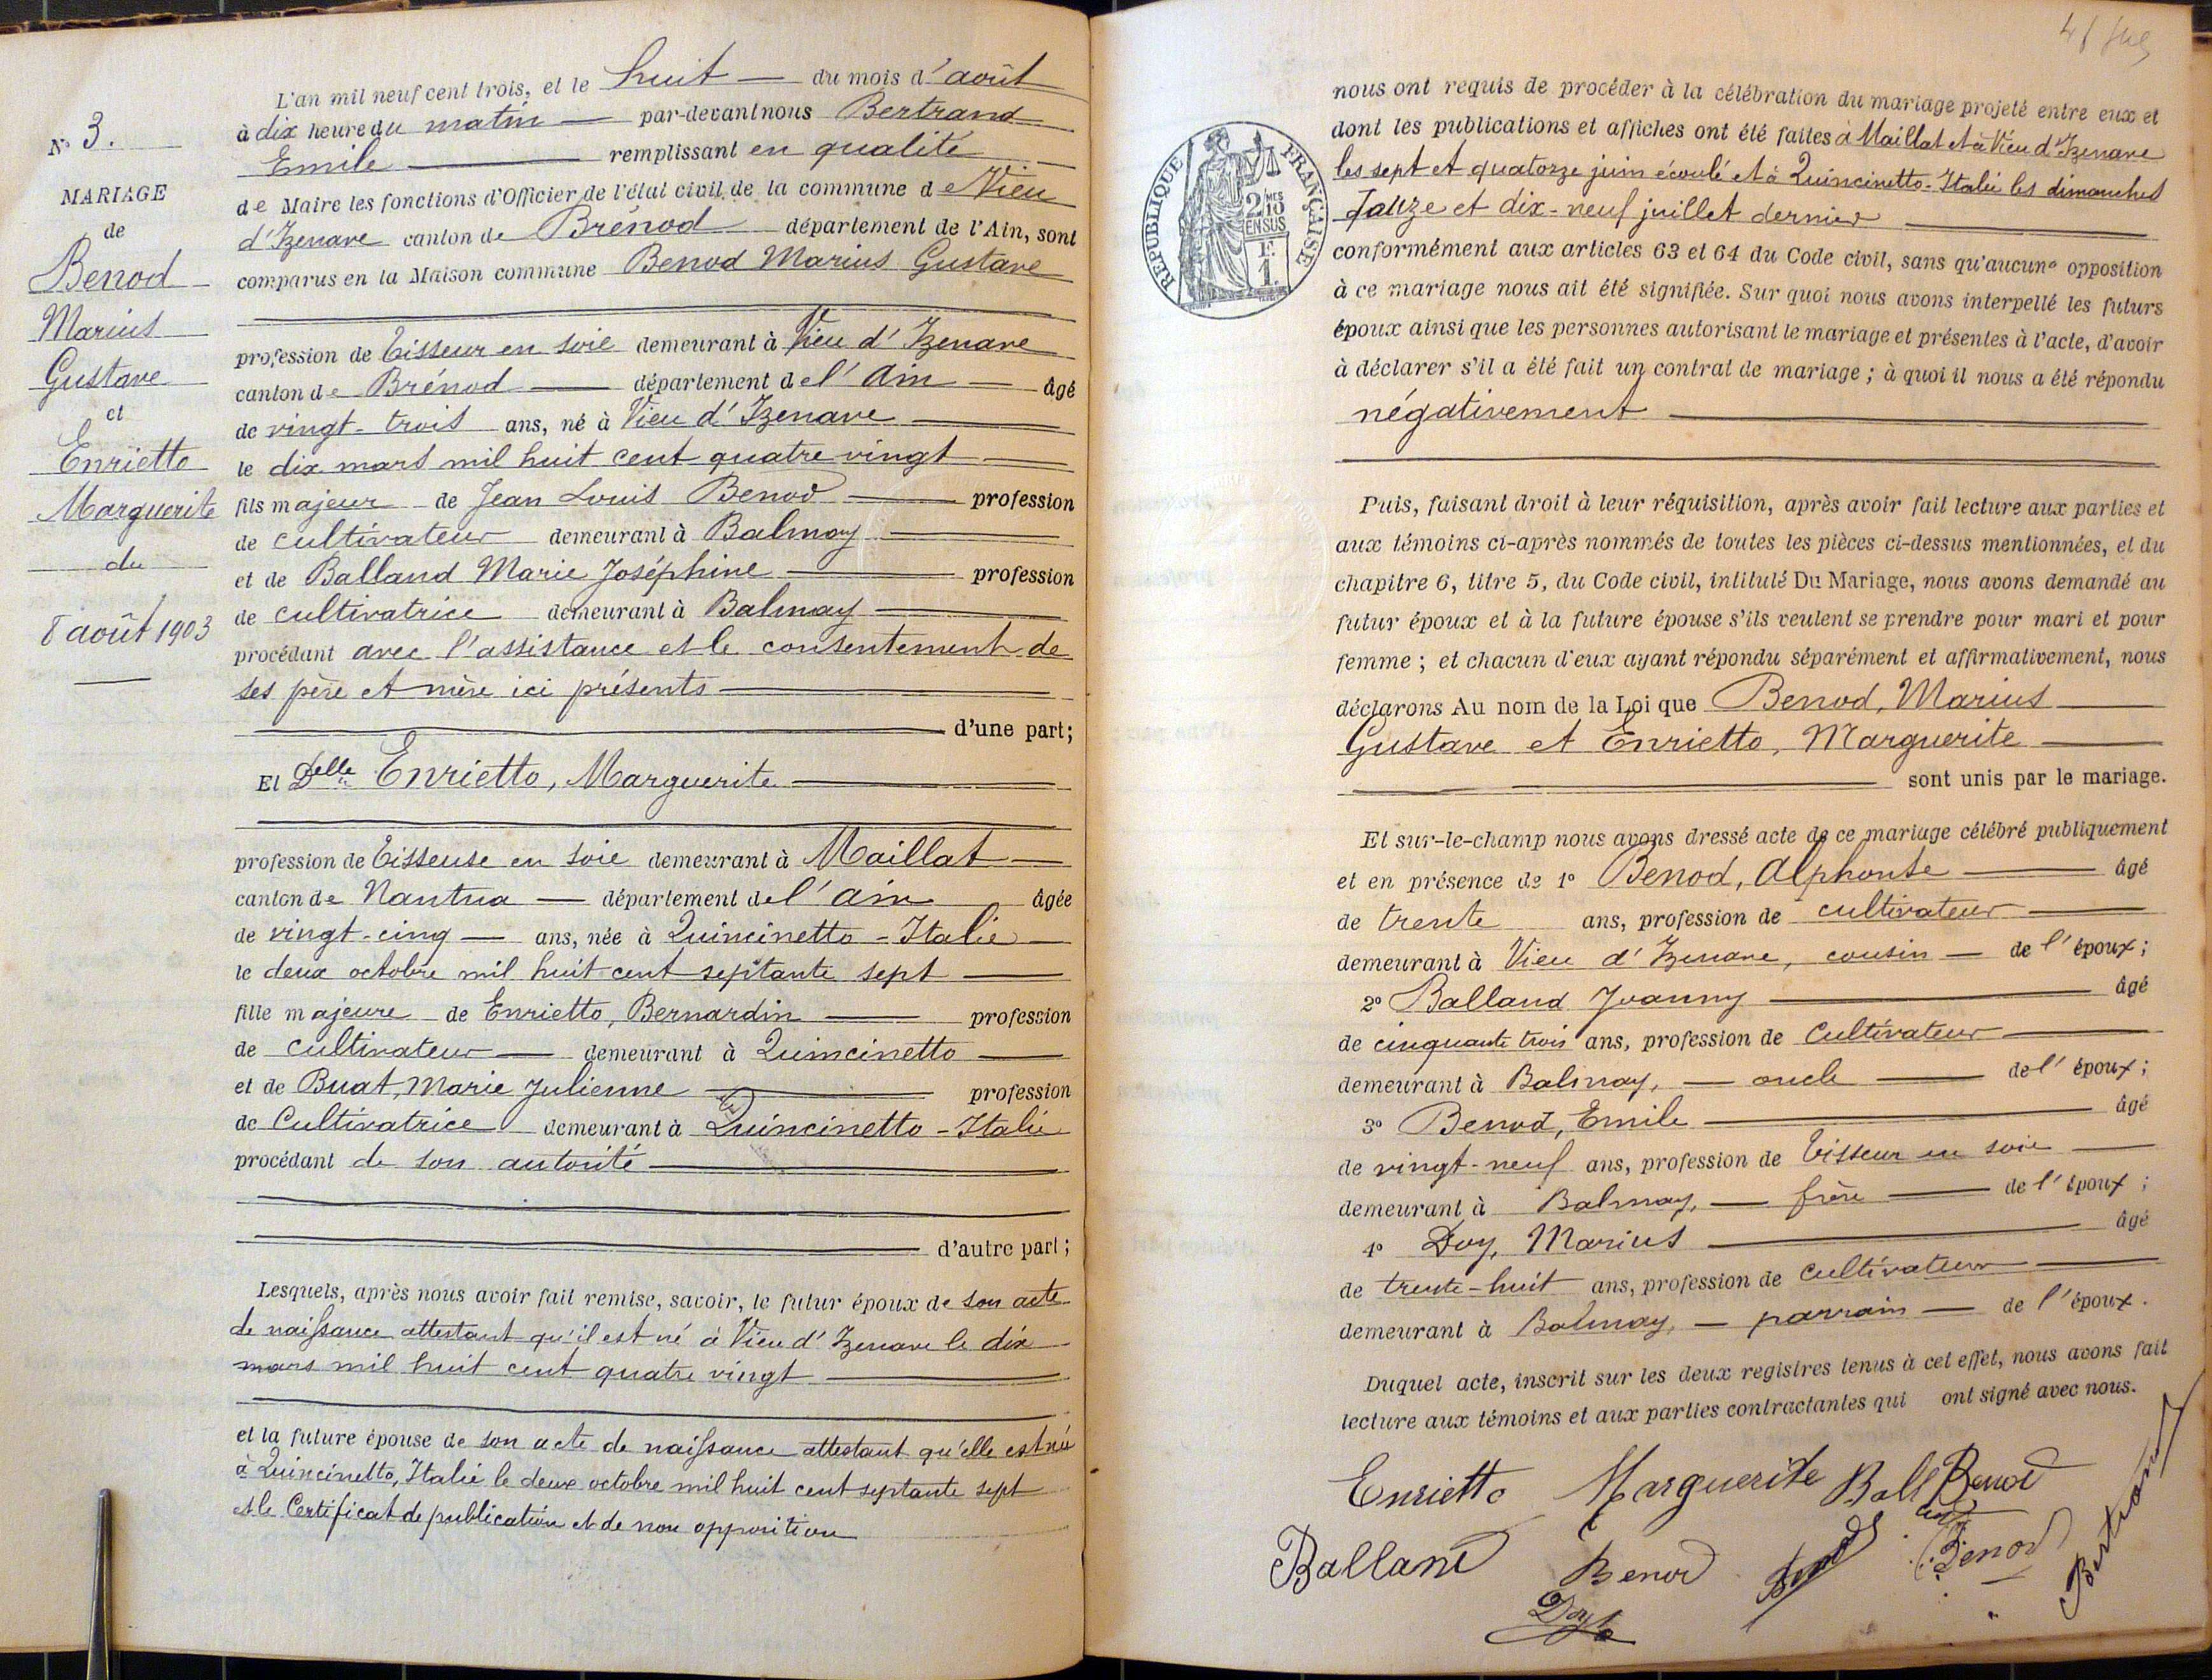 N° 3.
MARIAGE
de
Benod
Marius
Gustave
et
Enrietto
Marguerite
du
8 août 1903
L'an mil neuf cent trois, et le huit du mois d'août
à dix heure du matin par-devant nous Bertrand
Emile remplissant en qualité
de Maire les fonctions d'Officier de l'état civil de la commune de Vieu
d'Izenave canton de Brénod département de l'Ain, sont
comparus en la Maison commune Benod Marius Gustave
profession de tisseur en soie demeurant à Vieu d'Izenave
canton de Brénod département de l'Ain âgé
de vingt-trois ans, né à Vieu d'Izenave
le dix mars mil huit cent quatre vingt
fils majeur de Jean Louis Benod profession
de cultivateur demeurant à Balmay
et de Balland Marie Joséphine profession
de cultivatrice demeurant à Balmay
procédant avec l'assistance et le consentement de
ses père et mère ici présents
d'une part;
Et Delle Enrietto, Marguerite
profession de tisseuse en soie demeurant à Maillat
canton de Nantua département de l'Ain âgée
de vingt-cinq ans, née à Quincinetto - Italie
le deux octobre mil huit cent septante sept
fille majeure de Enrietto, Bernardin profession
de cultivateur demeurant à Quincinetto
et de Buat, Marie Julienne profession
de Cultivatrice demeurant à Quincinetto - Italie
procédant de son autorité
d'autre part;
Lesquels, après nous avoir fait remise, savoir, le futur époux de son acte
de naissance attestant qu'il est né à Vieu d'Izenave le dix
mars mil huit cent quatre vingt
et la future épouse de son acte de naissance attestant qu'elle est née
à Quincinetto, Italie le deux octobre mil huit cent septante sept
et le Certificat de publication et de non opposition
RÉPUBLIQUE FRANÇAISE
2/10 MES
EN SUS
1 F.
nous ont requis de procéder à la célébration du mariage projeté entre eux et
dont les publications et affiches ont été faites à Maillat et à Vieu d'Izenave
les sept et quatorze juin écoulé et à Quincinetto-Italie les dimanches
douze et dix-neuf juillet dernier
conformément aux articles 63 et 64 du Code civil, sans qu'aucune opposition
à ce mariage nous ait été signifiée. Sur quoi nous avons interpellé les futurs
époux ainsi que les personnes autorisant le mariage et présentes à l'acte, d'avoir
à déclarer s'il a été fait un contrat de mariage ; à quoi il nous a été répondu
négativement
Puis, faisant droit à leur réquisition, après avoir fait lecture aux parties et
aux témoins ci-après nommés de toutes les pièces ci-dessus mentionnées, et du
chapitre 6, titre 5, du Code civil, intitulé Du Mariage, nous avons demandé au
futur époux et à la future épouse s'ils veulent se prendre pour mari et pour
femme ; et chacun d'eux ayant répondu séparément et affirmativement, nous
déclarons Au nom de la Loi que Benod, Marius
Gustave et Enrietto, Marguerite
sont unis par le mariage.
Et sur-le-champ nous avons dressé acte de ce mariage célébré publiquement
et en présence de 1° Benod, Alphonse âgé
de trente ans, profession de cultivateur
demeurant à Vieu d'Izenave, cousin de l'époux;
2° Balland Joanny âgé
de cinquante trois ans, profession de Cultivateur
demeurant à Balmay, oncle de l'époux;
3° Benod, Emile âgé
de vingt-neuf ans, profession de tisseur en soie
demeurant à Balmay, frère de l'époux;
4° Doy, Marius âgé
de trente-huit ans, profession de cultivateur
demeurant à Balmay, parrain de l'époux.
Duquel acte, inscrit sur les deux registres tenus à cet effet, nous avons fait
lecture aux témoins et aux parties contractantes qui ont signé avec nous.
Enrietto Marguerite Ball Benod
Balland Benod Benod Bertrand
Doy